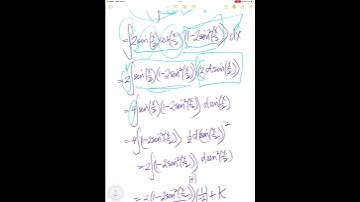 =∫2sin(x/2)cos(x/2)(1-2sin²(x/2))dx
=2∫sin(x/2)(1-2sin²(x/2))(2dsin(x/2))
=4∫sin(x/2)(1-2sin²(x/2))dsin(x/2)
=4∫(1-2sin²(x/2))½d(sin(x/2))²
=2∫(1-2sin²(x/2))dsin²(x/2)
=2(1-2sin²(x/2))(-½)+K